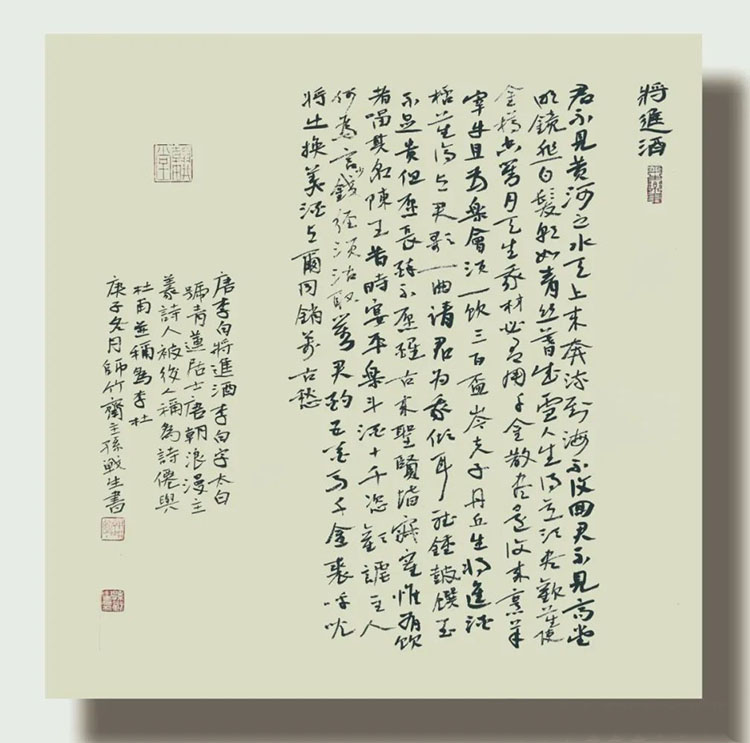 將進酒
君不見黄河之水天上来奔流到海不復回君不見高堂
明鏡悲白髮朝如青丝暮成雪人生得意須尽歡莫使
金樽空對月天生我材必有用千金散尽還復来烹羊
宰牛且為樂會須一飲三百盃岑夫子丹丘生將進酒
杯莫停与君歌一曲請君為我傾耳聽鐘鼓饌玉
不足貴但愿長醉不愿醒古来聖賢皆寂寞惟有飲
者留其名陳王昔時宴平樂斗酒十千恣歡謔主人
何為言少錢徑須沽取對君酌五花馬千金裘呼児
將出換美酒与爾同銷萬古愁
唐李白將進酒李白字太白
號青蓮居士唐朝浪漫主
義詩人被後人稱為詩僊與
杜甫並稱為李杜
庚子冬月師竹齋主孫戰生書